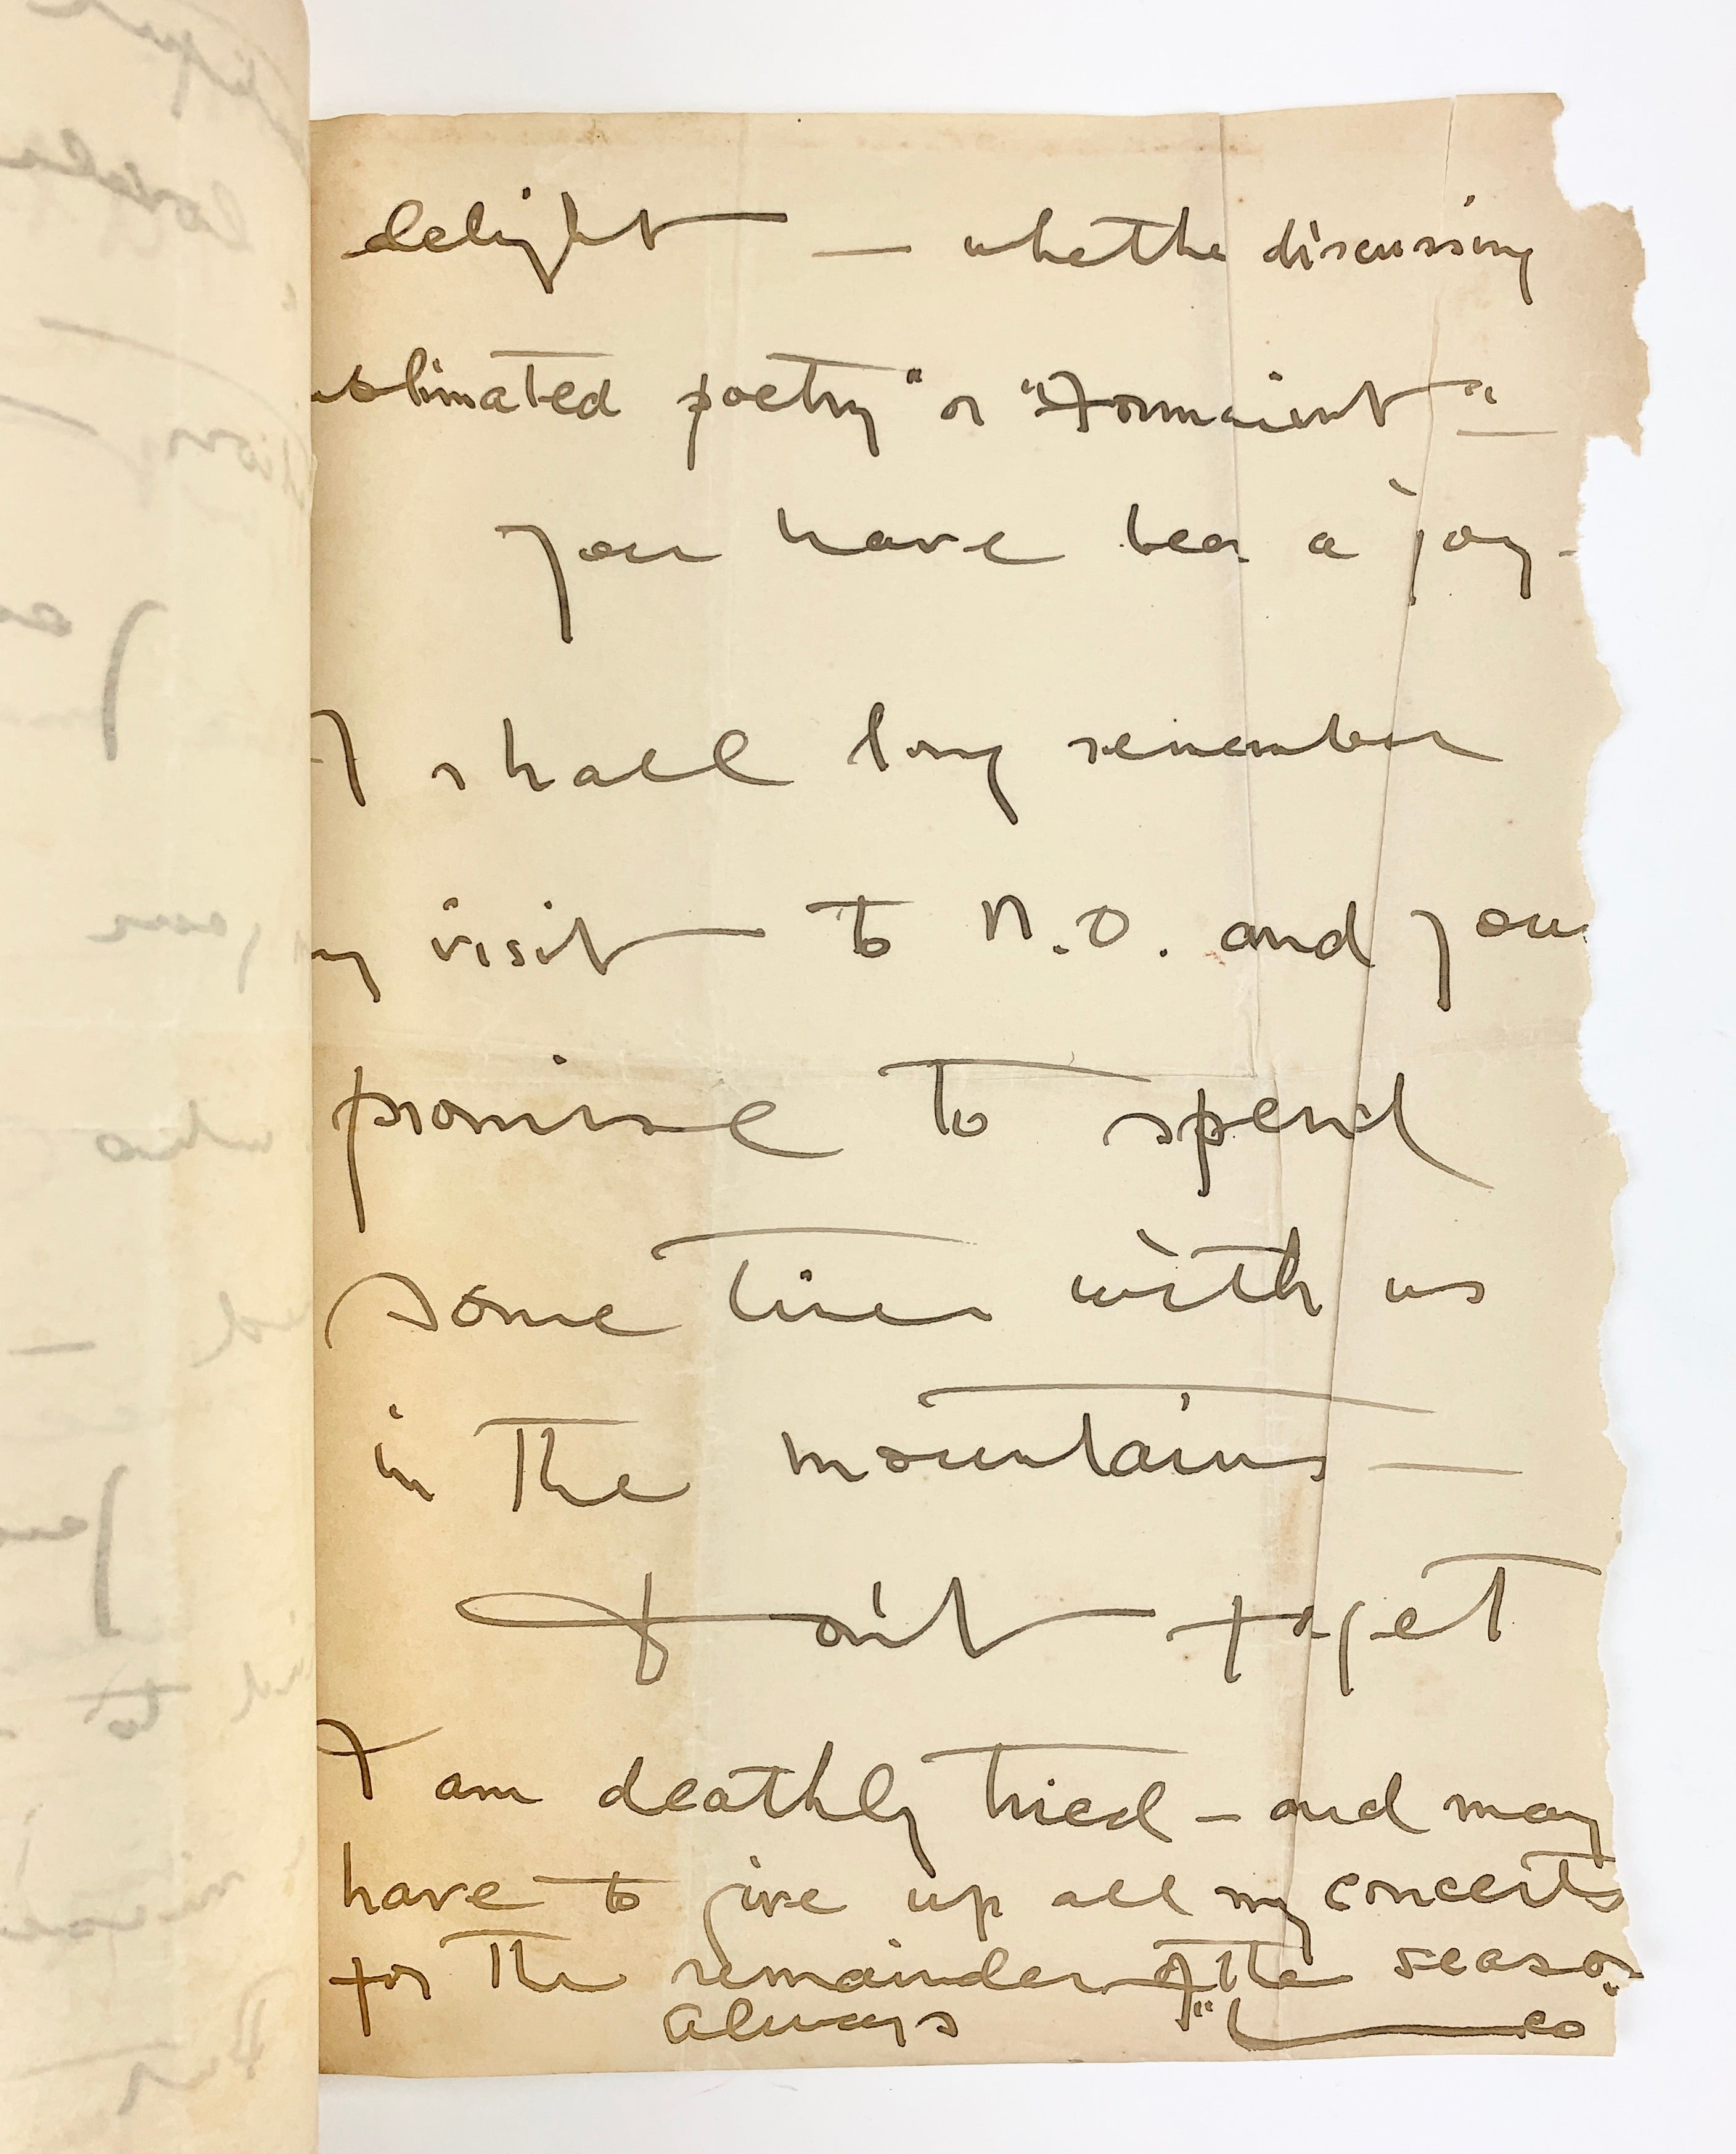 delight — whether discussing
ublimated poetry" or
you have been a joy-
I shall long remember
my visit to N.O. and your
promise to spend
some time with us
in the mountains —
don't forget
I am deathly tired – and may
have to give up all my concerts
for the remainder of the season
Always "Leo